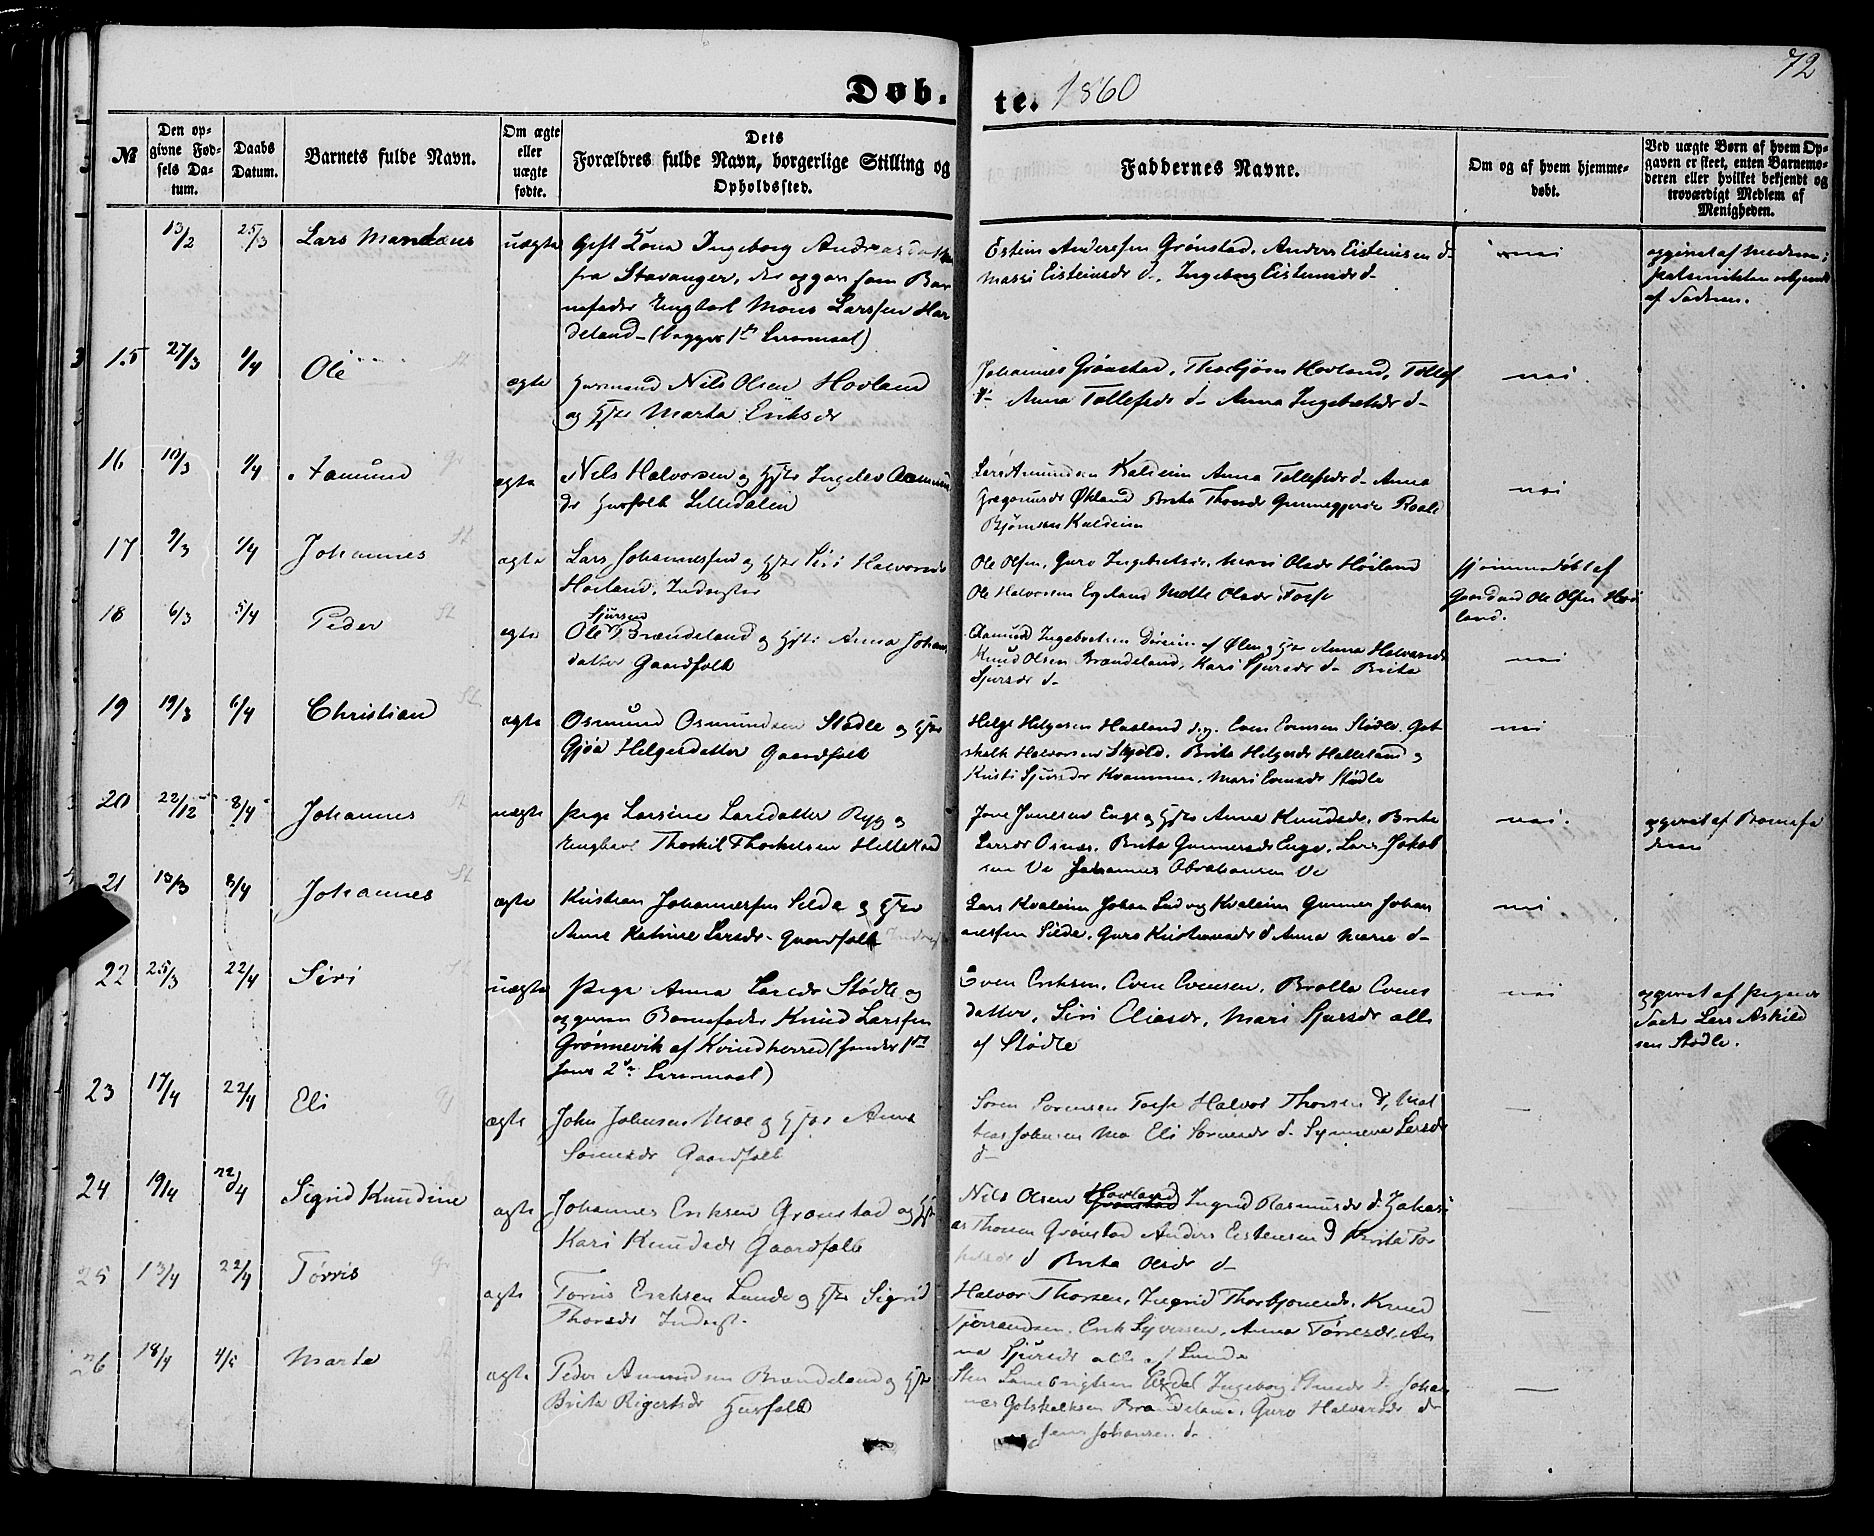 72
Døb- te. 1860
№
Den op-
givne Fød-
sels Da-
tum.
Daabs
Datum.
Barnets fulde Navn.
Om ægte
eller
uægte
fødte.
Dets
Forældres fulde Navn, borgerlige Stilling og
Opholdssted.
Faddernes Navne.
Om og af hvem hjemme-
døbt.
Ved uægte Børn af hvem Op-
gaven er skeet, enten Barnemo-
deren eller hvilket bekjendt og
troværdigt Medlem af
Menigheden.
13/2 25/3 Lars Mandeus uægte
Gift Kona Ingeborg Andreasdatter
fra Stavanger, der opgav som Bar
nefader Ungkarl Mons Larssen Har
deland - (begges 1ste Leiermaal)
Estein Anderssen Grønstad, Anders Eisteinsen d-
Marri Eisteinsdr d-, Ingeborg Eisteinsdr d-
nei
opgivet af Moderen i
af Faderen.
15 27/3 1/4 Ole St ægte
Huusmand Nils Olsen Hovland
og Hstr Marta Eriksdr
Johannes Grønstad, Thorbjørn Hovland, Tollef
d- Anna Tollefsdr d- Anna Ingebretsdr d-
nei.
16 10/3 1/4 Aamund Gr ægte
Nils Halvorsen og Hstr Ingelev Aamunds
dr Husfolk Lilledalen
Lars Amundsen Kaldeim Anna Tollefsdr d- Anna
Gregoriusdr Økland Brita Thorsdr Gunnegjerde Roald
Bjørnsen Kaldeim
nei
17 9/3 1/4 Johannes St ægte
Lars Johannessen og Hstr Siri Halvorsdr
Høiland, Inderster
Ole Olsen, Guro Ingebretsdr, Mari Olsdr Høiland
Ole Halvorsen Egeland Mette Olsdr Tosse
hjemmedøbt af
Gaardmd Ole Olsen Høi
land.
18 6/3 5/4 Peder St ægte
Sjursen
Ole Brændeland og Hstr Anna Johans
datter Gaardfolk
Aamund Ingebretsen Dørheim af Ølen og Hstr Anna Halvorsdr
Knud Olsen Brændeland, Kari Sjursdr d- Brita
Sjursdr d-
nei
19 19/3 6/4 Christian St ægte
Osmund Osmundsen Stødle og Hstr
Gjøa Helgesdatter Gaardfolk
Helge Helgesen Haaland Even Evensen Stødle, Got
skalk Halvorsen Skjold, Brita Helgesdr Helleland og
Kristi Sjursdr Kvammen, Mari Evensdr Stødle
nei
20 22/12 8/4 Johannes St uægte
Pige Larsine Larsdatter Ryg og
Ungkarl Thorkil Thorkelsen Helleland
Jone Jonesen Enge og Hstr Anna Knudsdr, Brita
Larsdr Osnes, Brita Gunnersdr Enge, Lars Jakob
sen Ve Johannes Abrahamsen Ve
nei.
opgivet af Barnefa
deren
21 13/3 8/4 Johannes St ægte
Kristian Johannessen Silde og Hstr
Anne Katrine Larsdr- Gaardfolk
Lars Kvaleim Johan Ludvig Kvaleim Gunner Johan
nessen Silde, Guro Kristiansdr d Anna Marie d-
nei
22 25/3 22/4 Siri St uægte
Pige Anna Larsdr Stødle og
opgiven Barnefader Knud Larssen
Grønnevik af Kvindherred (hendes 1ste
hans 2det Leiermaal)
Even Eriksen, Even Evensen, Brølla Evens
datter, Siri Eliasdr, Mari Sjursdr alle
af Stødle
nei
opgivet af Pigens
Fader Lars Askild
sen Stødle.
23 17/4 22/4 Eli Gr ægte
John Johnsen Moe og Hstr Anna
Sørensdr Gaardfolk
Søren Sørensen Tosse Halvor Thorsen d, Mat
hias Johnsen Mo Eli Sørensdr d- Synneva Larsdr
d-
—
24 19/4 22/4 Sigrid Knudine ægte
Johannes Eriksen Grønstad og Hstr
Kari Knudsdr Gaardfolk
Nils Olsen Hovland Grønstad Ingrid Rasmusdr d- Zakari
as Thorsen Grønstad Anders Eistensen d Brita Tor
kelsdr d Brita Olsdr d-
—
25 13/4 22/4 Tørris Gr ægte
Tørris Eriksen Lunde og Hstr Sigrid
Thorsdr Inderst-
Halvor Thorsen, Ingrid Thorbjørnsdr, Knud
Tjerrandsen, Erik Syversen, Anna Tørresdr, An
na Sjursdr alle af Lunde
—
26 18/4 4/5 Marta St ægte
Peder Amundsen Brændeland og Hstr
Brita Rigertsdr Husfolk
Sten Lambrigtsen Ersdal Ingeborg Stensdr d- Johan
nes Gotskalksen Brændeland, Guro Halvorsdr d-
Jens Johansen d-
—